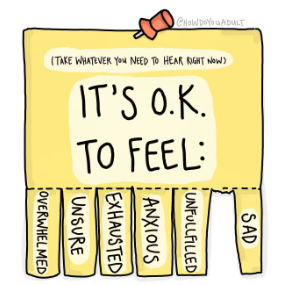 @HOWDOYOUADULT
(TAKE WHATEVER YOU NEED TO HEAR RIGHT NOW)
IT'S O.K.
TO FEEL:
OVERWHELMED
UNSURE
EXHAUSTED
ANXIOUS
UNFULLFILLED
SAD